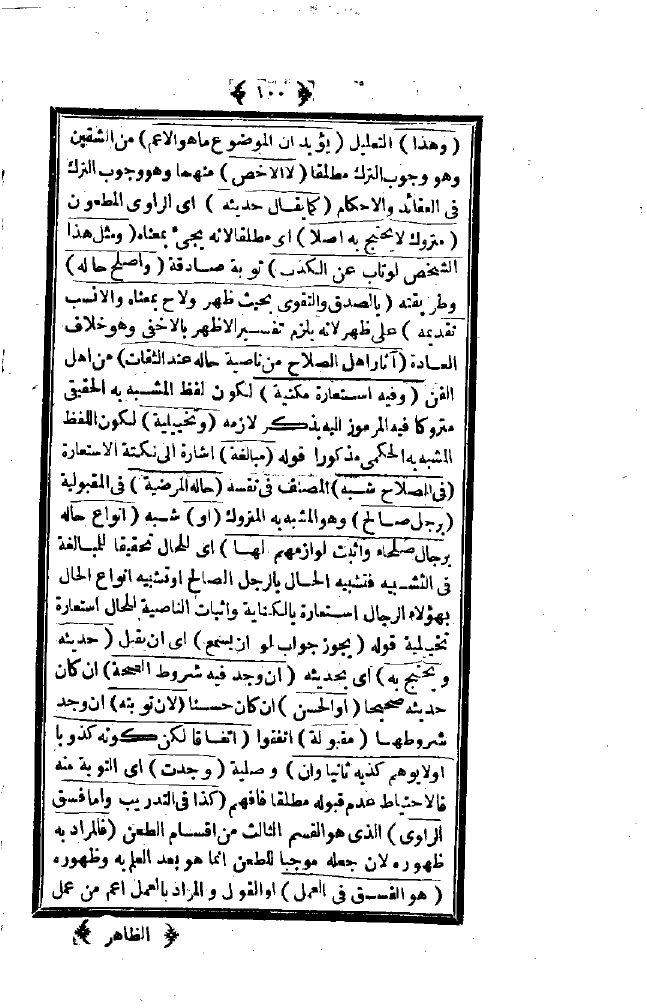 ﴿ ١٠٠ ﴾
( وهذا ) التعليل ( يؤيد ان الموضوع ماهو الاعم ) من الشقين
وهو وجوب الترك مطلقا ( لا الاخص ) منهما وهو وجوب الترك
فى العقائد والاحكام ( كما يقال حديثه ) اى الراوى المطعون
( متروك لا يحتج به اصلا ) اى مطلقا لانه يجىء بمعناه ( ومثل هذا
الشخص لوتاب عن الكذب ) توبة صادقة ( واصلح حاله )
وطريقته ( بالصدق والتقوى بحيث ظهر ولاح بمعناه والانسب
تقديمه ) على ظهر لانه يلزم تفسير الاظهر بالاخفى وهو خلاف
العادة ( آثار اهل الصلاح من ناصية حاله عند الثقات ) من اهل
الفن ( وفيه استعارة مكنية ) لكون لفظ المشبه به الحقيقى
متروكا فيه المرموز اليه بذكر لازمه ( وتخييلية ) لكون اللفظ
المشبه به الحكمى مذكورا قوله ( مبالغة ) اشارة الى نكتة الاستعارة
( فى الصلاح شبه ) المصنف فى نفسه ( حاله المرضية ) فى المقبولية
( برجل صالح ) وهو المشبه به المتروك ( او ) شبه ( انواع حاله
برجال صلحاء واثبت لوازمهم لها ) اى للحال تحقيقا للمبالغة
فى التشبيه فتشبيه الحال بالرجل الصالح او تشبيه انواع الحال
بهؤلاء الرجال استعارة بالكناية واثبات الناصية للحال استعارة
تخييلية قوله ( يجوز جواب لو ان يسمع ) اى ان يقبل ( حديثه
ويحتج به ) اى بحديثه ( ان وجد فيه شروط الصحة ) ان كان
حديثه صحيحا ( او الحسن ) ان كان حسنا ( لان توبته ) ان وجد
شروطها ( مقبولة ) اتفقوا ( اتفاقا لكن كونه كذوبا
اولا يوهم كذبه ثانيا وان ) وصلية ( وجدت ) اى التوبة منه
فالاحتياط عدم قبوله مطلقا فافهم ( كذا فى التدريب واما فسق
الراوى ) الذى هو القسم الثالث من اقسام الطعن ( فالمراد به
ظهوره لان جعله موجبا للطعن انما هو بعد العلم به وظهوره
( هو الفسق فى العمل ) او القول والمراد بالعمل اعم من عمل
﴿ الظاهر ﴾